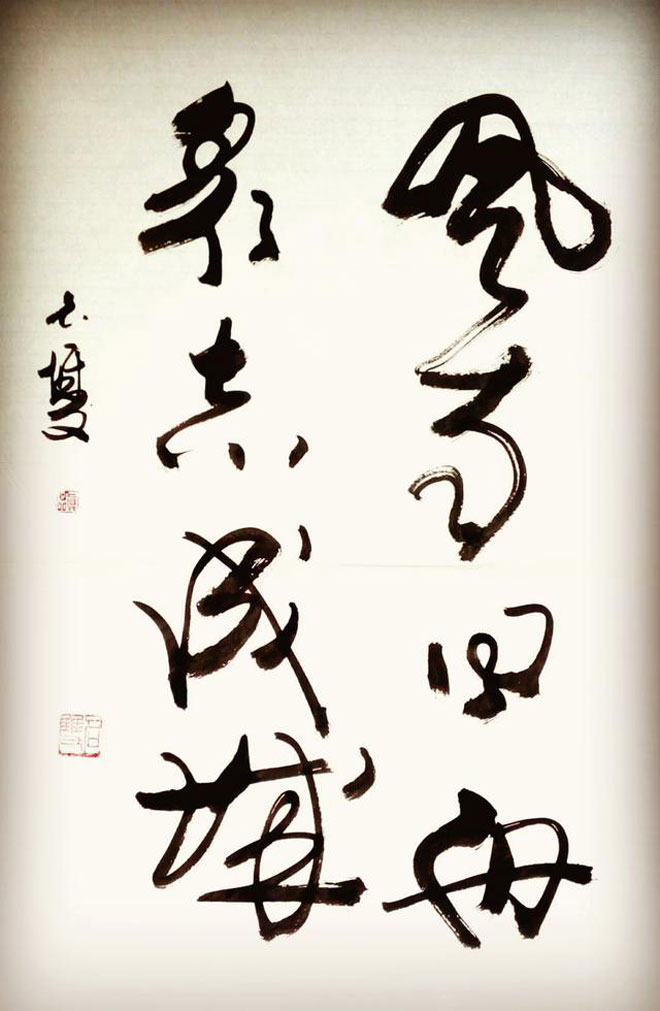 風雨同舟
眾志成城
石雙